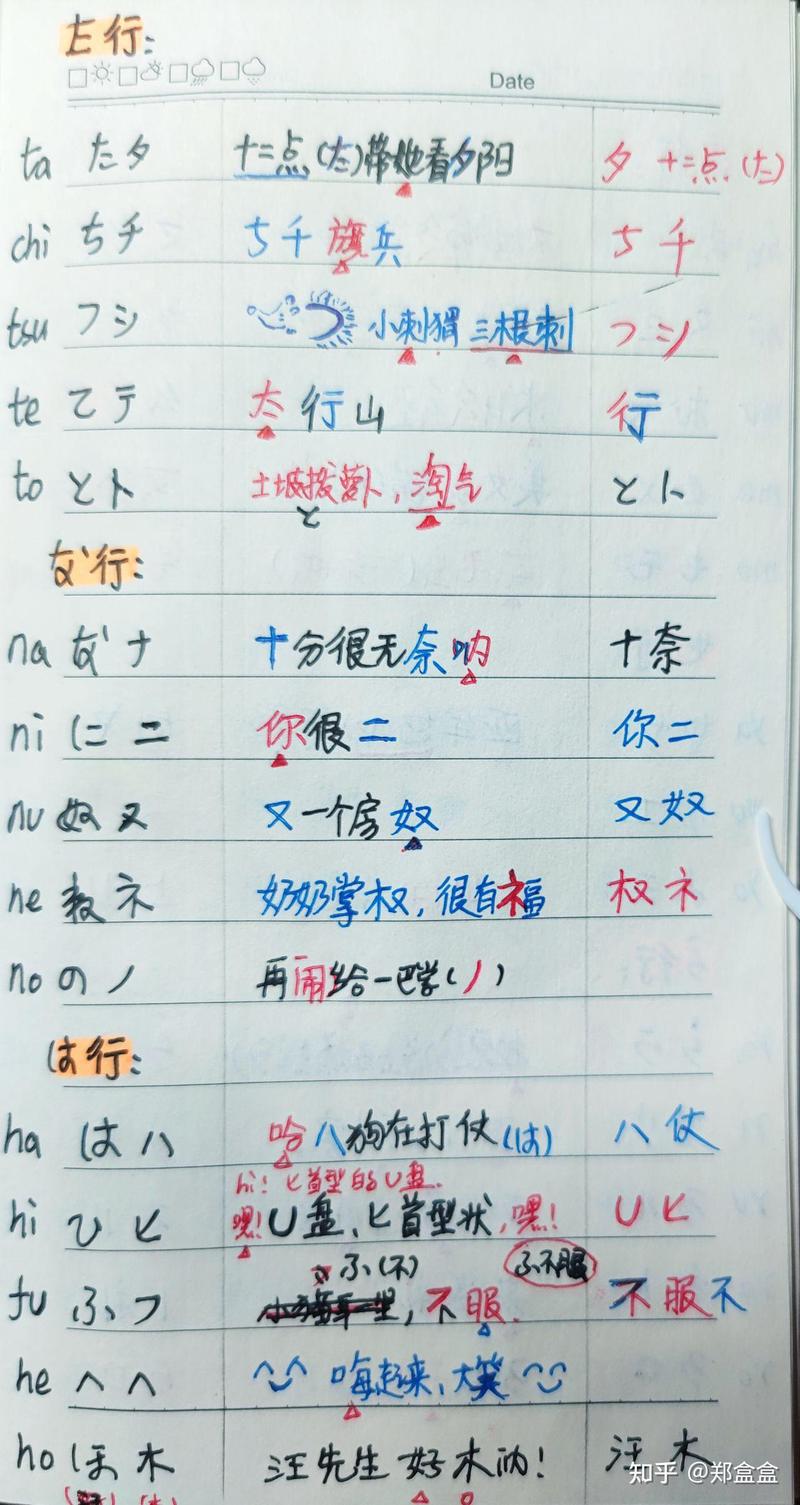 た行:
Date
ta たタ 十二点(た)带她看夕阳 夕 十二点(た)
chi ちチ ち千旗兵 ち千
tsu つシ 小刺猬三根刺 つシ
te てテ 太行山 行
to とト 土坡拔萝卜,淘气 とト
と
な行:
na なナ 十分很无奈呐 十奈
ni に ニ 你很二 你二
nu ぬ ヌ 又一个房奴 又奴
ne ね ネ 奶奶掌权,很有福 权ネ
no の ノ 再闹给一巴掌(ノ)
は行:
ha は ハ 哈八狗在打仗(は) 八仗
hi! 匕首型的U盘.
hi ひ ヒ 嘿!U盘、匕首型状,嘿! U匕
ふ(不) ふ不服
fu ふ フ ,不服. 不服不
he へ ヘ 嗨起来,大笑
ho ほ 木 汪先生好木呐! 汪木
知乎 @郑盒盒